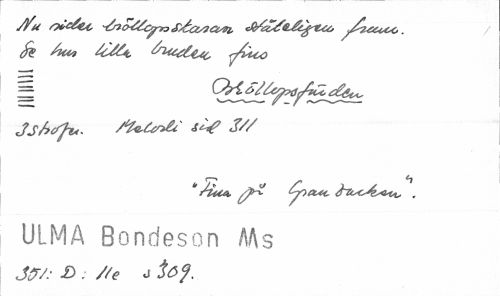 Nu rider bröllopsskaran ståteligen fram.
Se hur lilla bruden fins
Bröllopsfärden
3 strofer. Melodi sid 311
"Fina på Grandacken".
ULMA Bondeson Ms
351: D: 11e s 309.